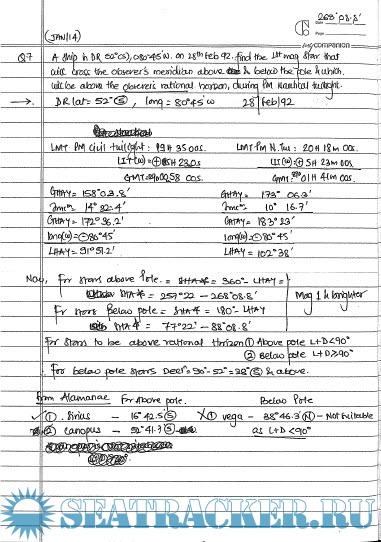 268°08.8'
Date
Page
companion
(JAN/14)
Q7 A ship in DR 52°(S), 080°45'W. on 28th Feb 92. find the 1st mag star that
will cross the observer's meridian above & below the pole & which
will be above the observer's rational horizon, during PM Nautical twilight.
→ DR lat = 52°(S), long = 80°45'W 28 Feb 92
LMT PM Civil twilight: 19H 35 00s. LMT PM N.Tw: 20H 18m 00s.
LIT(w) = ⊕ 05H 23 00s LIT(w) = + 5H 23m 00s
GMT 00 58 00s. GMT 01H 41m 00s.
GHAγ = 158° 03.8' GHAγ = 173° 06.3'
Incrᵐ = 14° 32.4' Incrᵐ = 10° 16.7'
GHAγ = 172° 36.2' GHAγ = 183° 23'
long(w) = ⊖ 80°45' long(w) = ⊖ 80°45'
LHAγ = 91° 51.2' LHAγ = 102° 38'
Now, For stars above Pole. = SHA* = 360° - LHAγ =
SHA* = 257° 22' - 268° 08.8' Mag 1 & brighter
For stars Below Pole = SHA* = 180° - LHAγ
SHA* = 77° 22' - 88° 08.8'
For stars to be above rational horizon ① Above pole L+D<90°
② Below pole L+D>90°
∴ For below pole stars Decⁿ = 90° - 52° = 38°(S) & above.
From Alamanac For Above pole. Below Pole
✓ ① Sirius - 16° 42.5(S) X ① vega - 38° 46.3(N) - Not Suitable
② Canopus - 52° 41.7(S) as L+D <90°
SEATRACKER.RU